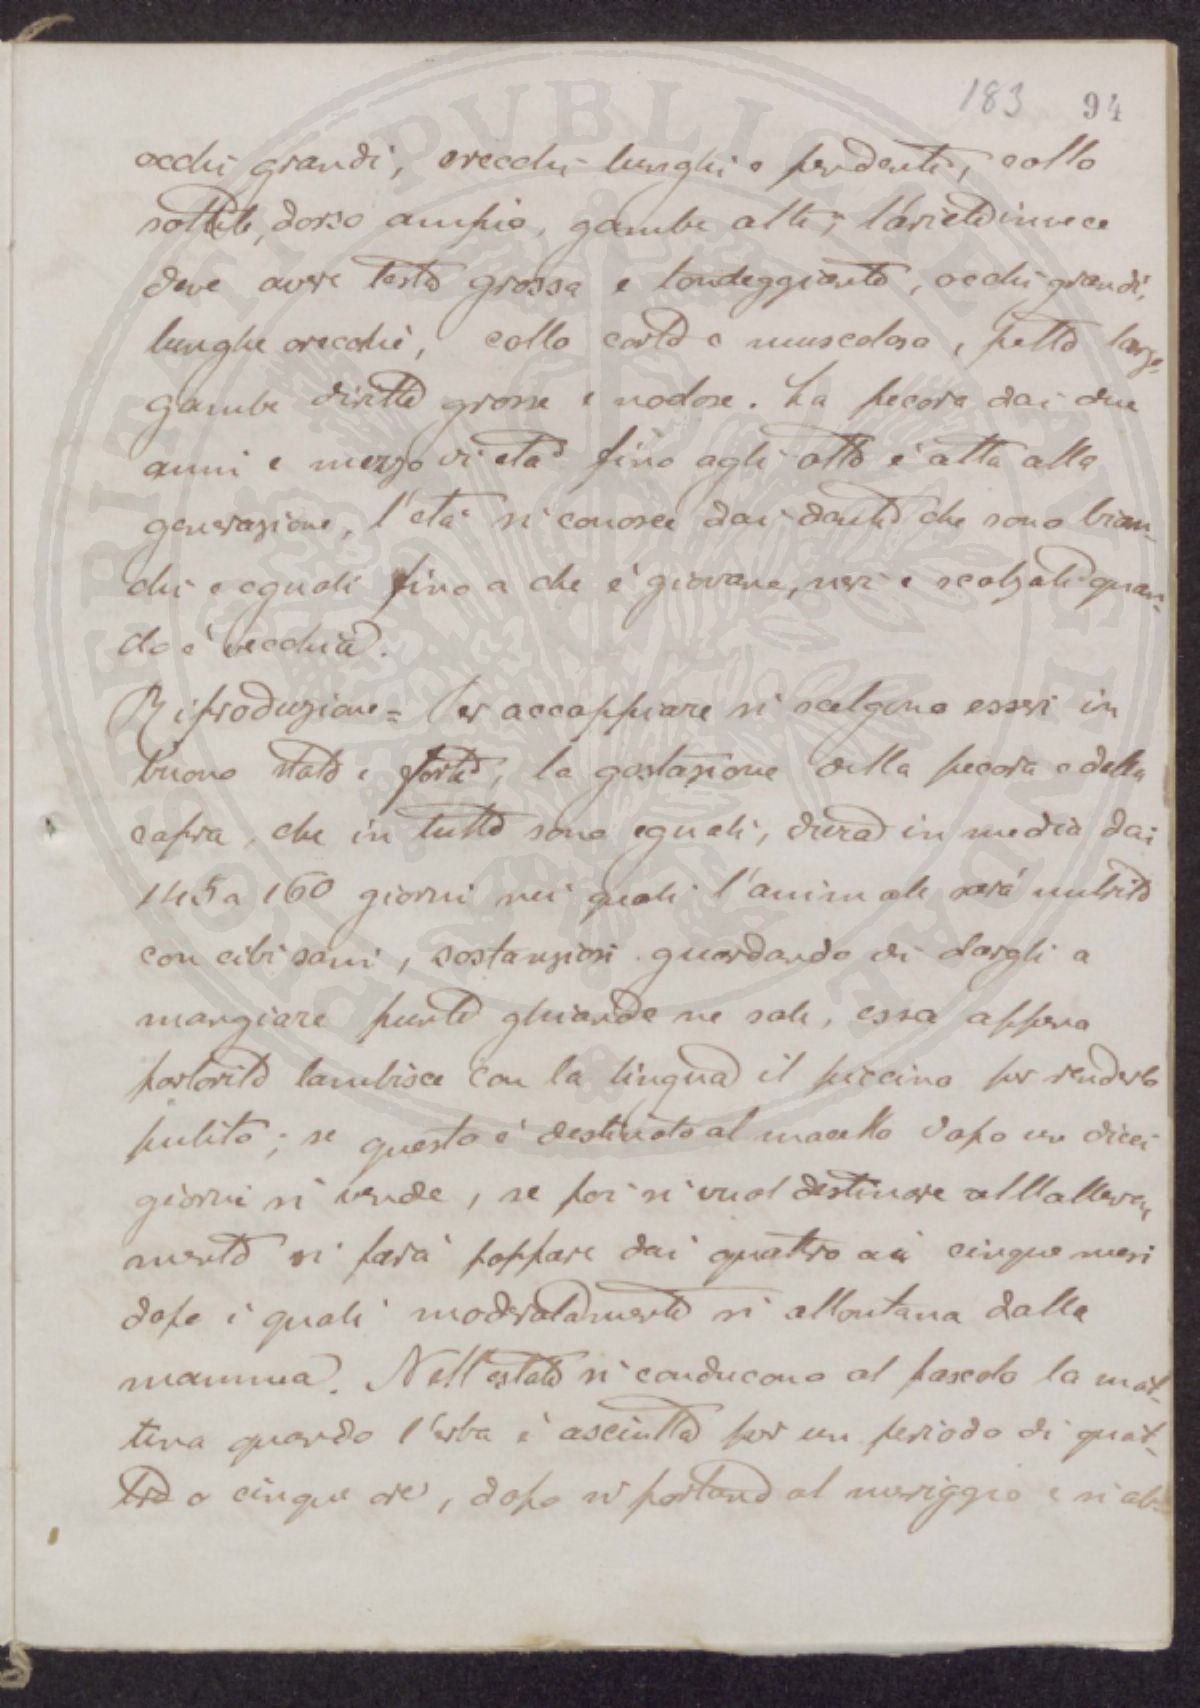 183 94
occhi grandi, orecchi lunghi e pendenti, collo
sottile, dorso ampio, gambe alte; l'ariete invece
deve avere testa grossa e tondeggiante, occhi grandi,
lunghe orecchie, collo corto e muscoloso, petto largo,
gambe diritte grosse e nodose. La pecora dai due
anni e mezzo di età fino agli otto è atta alla
generazione, l'età si conosce dai denti che sono bian-
chi e eguali fino a che è giovane, neri e scalzati quan-
do è vecchia.
Riproduzione = Per accoppiare si scelgono esseri in
buono stato e forti, la gestazione della pecora e della
capra, che in tutto sono eguali, dura in media dai
145 a 160 giorni nei quali l'animale sarà nutrito
con cibi sani, sostanziosi guardando di dargli a
mangiare punte ghiande ne sale, essa appena
partorito lambisce con la lingua il piccino per renderlo
pulito; se questo è destinato al macello dopo un dieci
giorni si vende, se poi si vuol destinare all'alleva-
mento si farà poppare dai quattro ai cinque mesi
dopo i quali moderatamente si allontana dalla
mamma. Nell'estate si conducono al pascolo la mat-
tina quando l'erba è asciutta per un periodo di quat-
tro o cinque ore, dopo si portano al meriggio e si ab-
PROPRIETÀ PUBLICAE